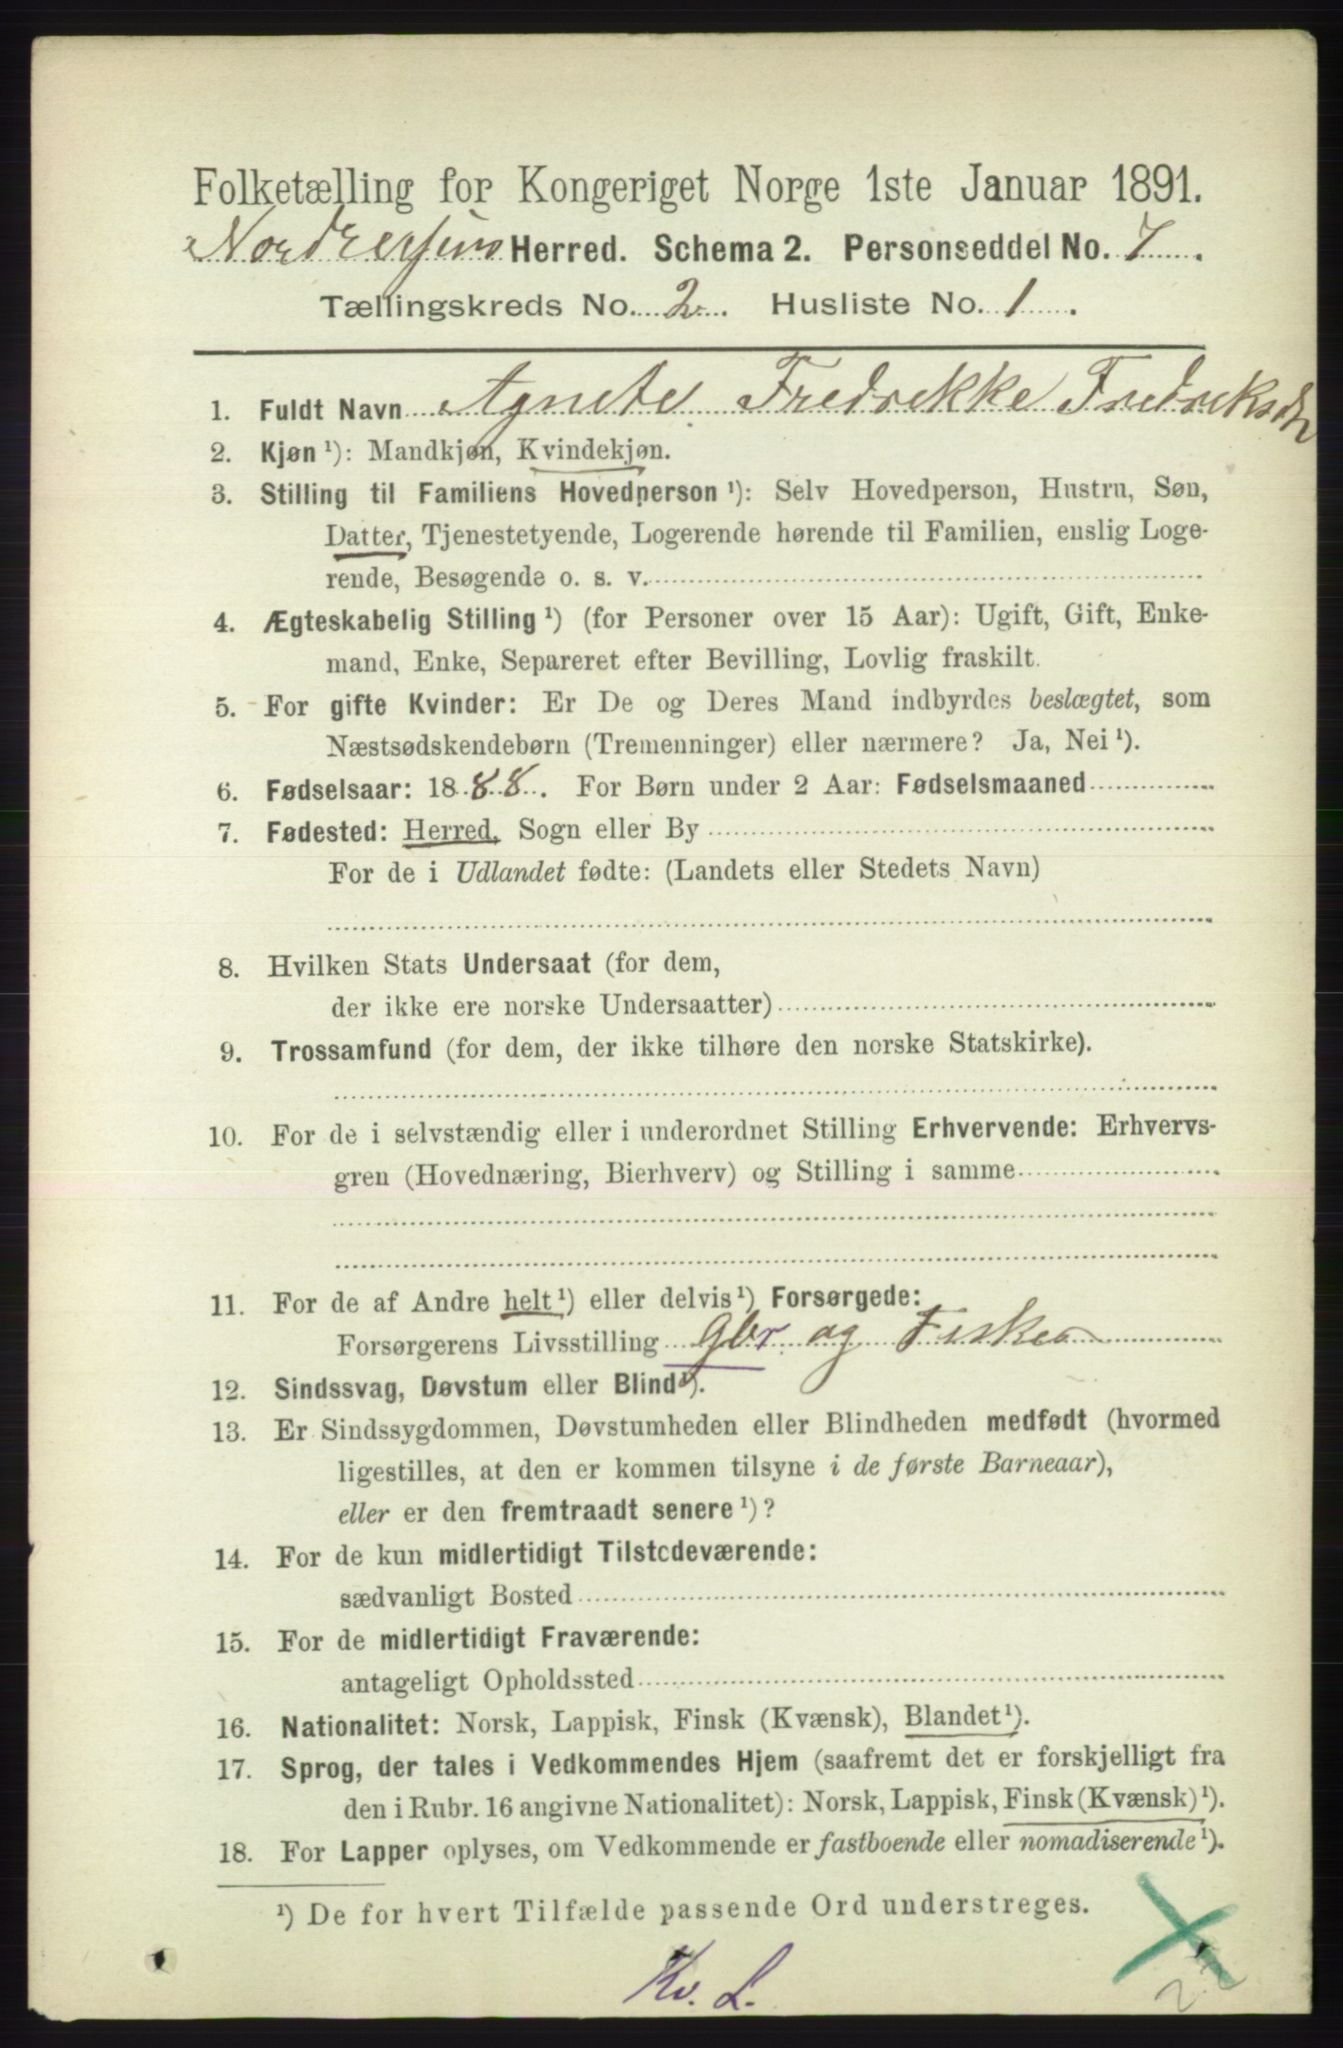 Folketælling for Kongeriget Norge 1ste Januar 1891.
Nordreisens Herred. Schema 2. Personseddel No. 7.
Tællingskreds No. 2. Husliste No. 1.
1. Fuldt Navn Agnete Fredrekke Fredreksdtr
2. Kjøn ¹): Mandkjøn, Kvindekjøn.
3. Stilling til Familiens Hovedperson ¹): Selv Hovedperson, Hustru, Søn,
Datter, Tjenestetyende, Logerende hørende til Familien, enslig Loge-
rende, Besøgende o. s. v.
4. Ægteskabelig Stilling ¹) (for Personer over 15 Aar): Ugift, Gift, Enke-
mand, Enke, Separeret efter Bevilling, Lovlig fraskilt.
5. For gifte Kvinder: Er De og Deres Mand indbyrdes beslægtet, som
Næstsødskendebørn (Tremenninger) eller nærmere? Ja, Nei ¹).
6. Fødselsaar: 1888. For Børn under 2 Aar: Fødselsmaaned
7. Fødested: Herred, Sogn eller By
For de i Udlandet fødte: (Landets eller Stedets Navn)
8. Hvilken Stats Undersaat (for dem,
der ikke ere norske Undersaatter)
9. Trossamfund (for dem, der ikke tilhøre den norske Statskirke).
10. For de i selvstændig eller i underordnet Stilling Erhvervende: Erhvervs-
gren (Hovednæring, Bierhverv) og Stilling i samme
11. For de af Andre helt ¹) eller delvis ¹) Forsørgede:
Forsørgerens Livsstilling Gbr. og Fisker
12. Sindssvag, Døvstum eller Blind ¹).
13. Er Sindssygdommen, Døvstumheden eller Blindheden medfødt (hvormed
ligestilles, at den er kommen tilsyne i de første Barneaar),
eller er den fremtraadt senere ¹)?
14. For de kun midlertidigt Tilstedeværende:
sædvanligt Bosted
15. For de midlertidigt Fraværende:
antageligt Opholdssted
16. Nationalitet: Norsk, Lappisk, Finsk (Kvænsk), Blandet ¹).
17. Sprog, der tales i Vedkommendes Hjem (saafremt det er forskjelligt fra
den i Rubr. 16 angivne Nationalitet): Norsk, Lappisk, Finsk (Kvænsk) ¹).
18. For Lapper oplyses, om Vedkommende er fastboende eller nomadiserende ¹).
¹) De for hvert Tilfælde passende Ord understreges.
Kv. L.